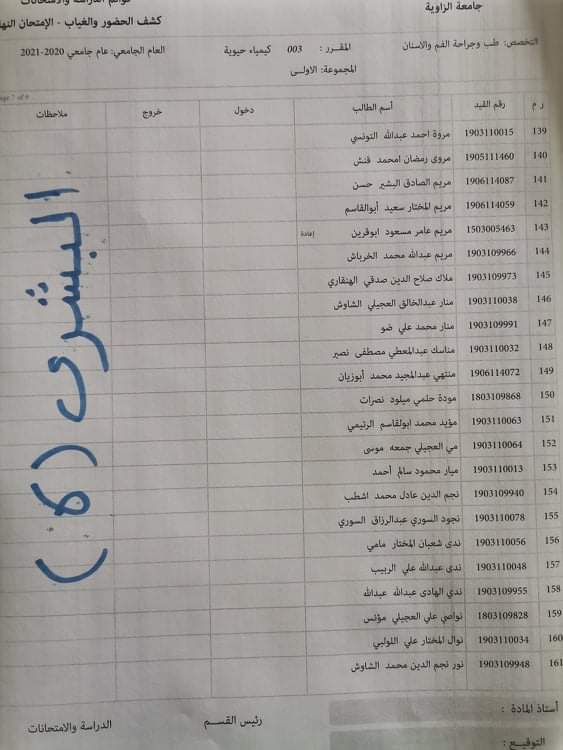 جامعة الزاوية
قوائم الدراسة والامتحانات
كشف الحضور والغياب - الإمتحان النها
التخصص: طب وجراحة الفم والاسنان
المقـرر : 003 كيمياء حيوية
العام الجامعي: عام جامعي 2020-2021
المجموعة: الاولـى
ر م رقم القيد أسم الطالب دخول خروج ملاحظات
139 1903110015 مروة احمد عبدالله التونسي
140 1905111460 مروى رمضان امحمد قنش
141 1906114087 مريم الصادق البشير حسن
142 1906114059 مريم المختار سعيد أبوالقاسم
143 1503005463 مريم عامر مسعود ابوقرين إعادة
144 1903109966 مريم عبدالله محمد الخرباش
145 1903109973 ملاك صلاح الدين صدقي الهنقاري
146 1903110038 منار عبدالخالق العجيلي الشاوش
147 1903109991 منار محمد علي ضو
148 1903110032 مناسك عبدالمعطي مصطفى نصير
149 1906114072 منتهي عبدالمجيد محمد أبوزيان
150 1803109868 مودة حلمي ميلود نصرات
151 1903110063 مؤيد محمد ابولقاسم الرتيمي
152 1903110064 مي العجيلي جمعه موسى
153 1903110013 ميار محمود سالم أحمد
154 1903109940 نجم الدين عادل محمد اشطب
155 1903110078 نجود السوري عبدالرزاق السوري
156 1903110056 ندى شعبان المختار مامي
157 1903110048 ندى عبدالله علي الربيب
158 1903109955 ندي الهادى عبدالله عبدالله
159 1803109828 نواصي علي العجيلي مؤنس
160 1903110034 نوال المختار علي اللولبي
161 1903109948 نور نجم الدين محمد الشاوش
البشرى (6)
أستاذ المادة :
رئيس القســم
الدراسة والامتحانات
التوقيـع :